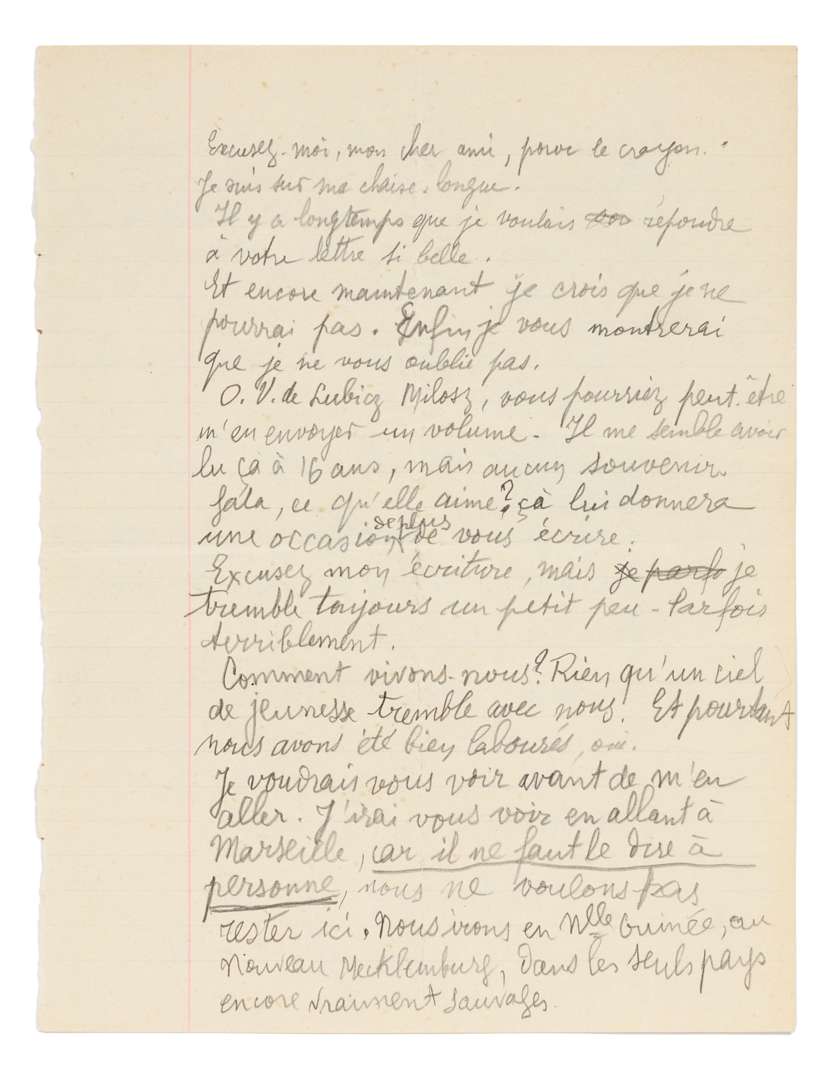 Excusez-moi, mon cher ami, pour le crayon.
Je suis sur ma chaise-longue.
Il y a longtemps que je voulais répondre
à votre lettre si belle.
Et encore maintenant je crois que je ne
pourrai pas. Enfin je vous montrerai
que je ne vous oublie pas.
O. V. de Lubicz Milosz, vous pourriez peut-être
m'en envoyer un volume. Il me semble avoir
lu ça à 16 ans, mais aucun souvenir.
Gala, ce qu'elle aime? çà lui donnera
une occasion de plus de vous écrire.
Excusez mon écriture, mais je parfo je
tremble toujours un petit peu - Parfois
terriblement.
Comment vivons-nous? Rien qu'un ciel
de jeunesse tremble avec nous. Et pourtant
nous avons été bien labourés, oui.
Je voudrais vous voir avant de m'en
aller. J'irai vous voir en allant à
Marseille, car il ne faut le dire à
personne, nous ne voulons pas
rester ici. Nous irons en Nlle Guinée, au
Nouveau Mecklemburg, dans les seuls pays
encore vraiment sauvages.